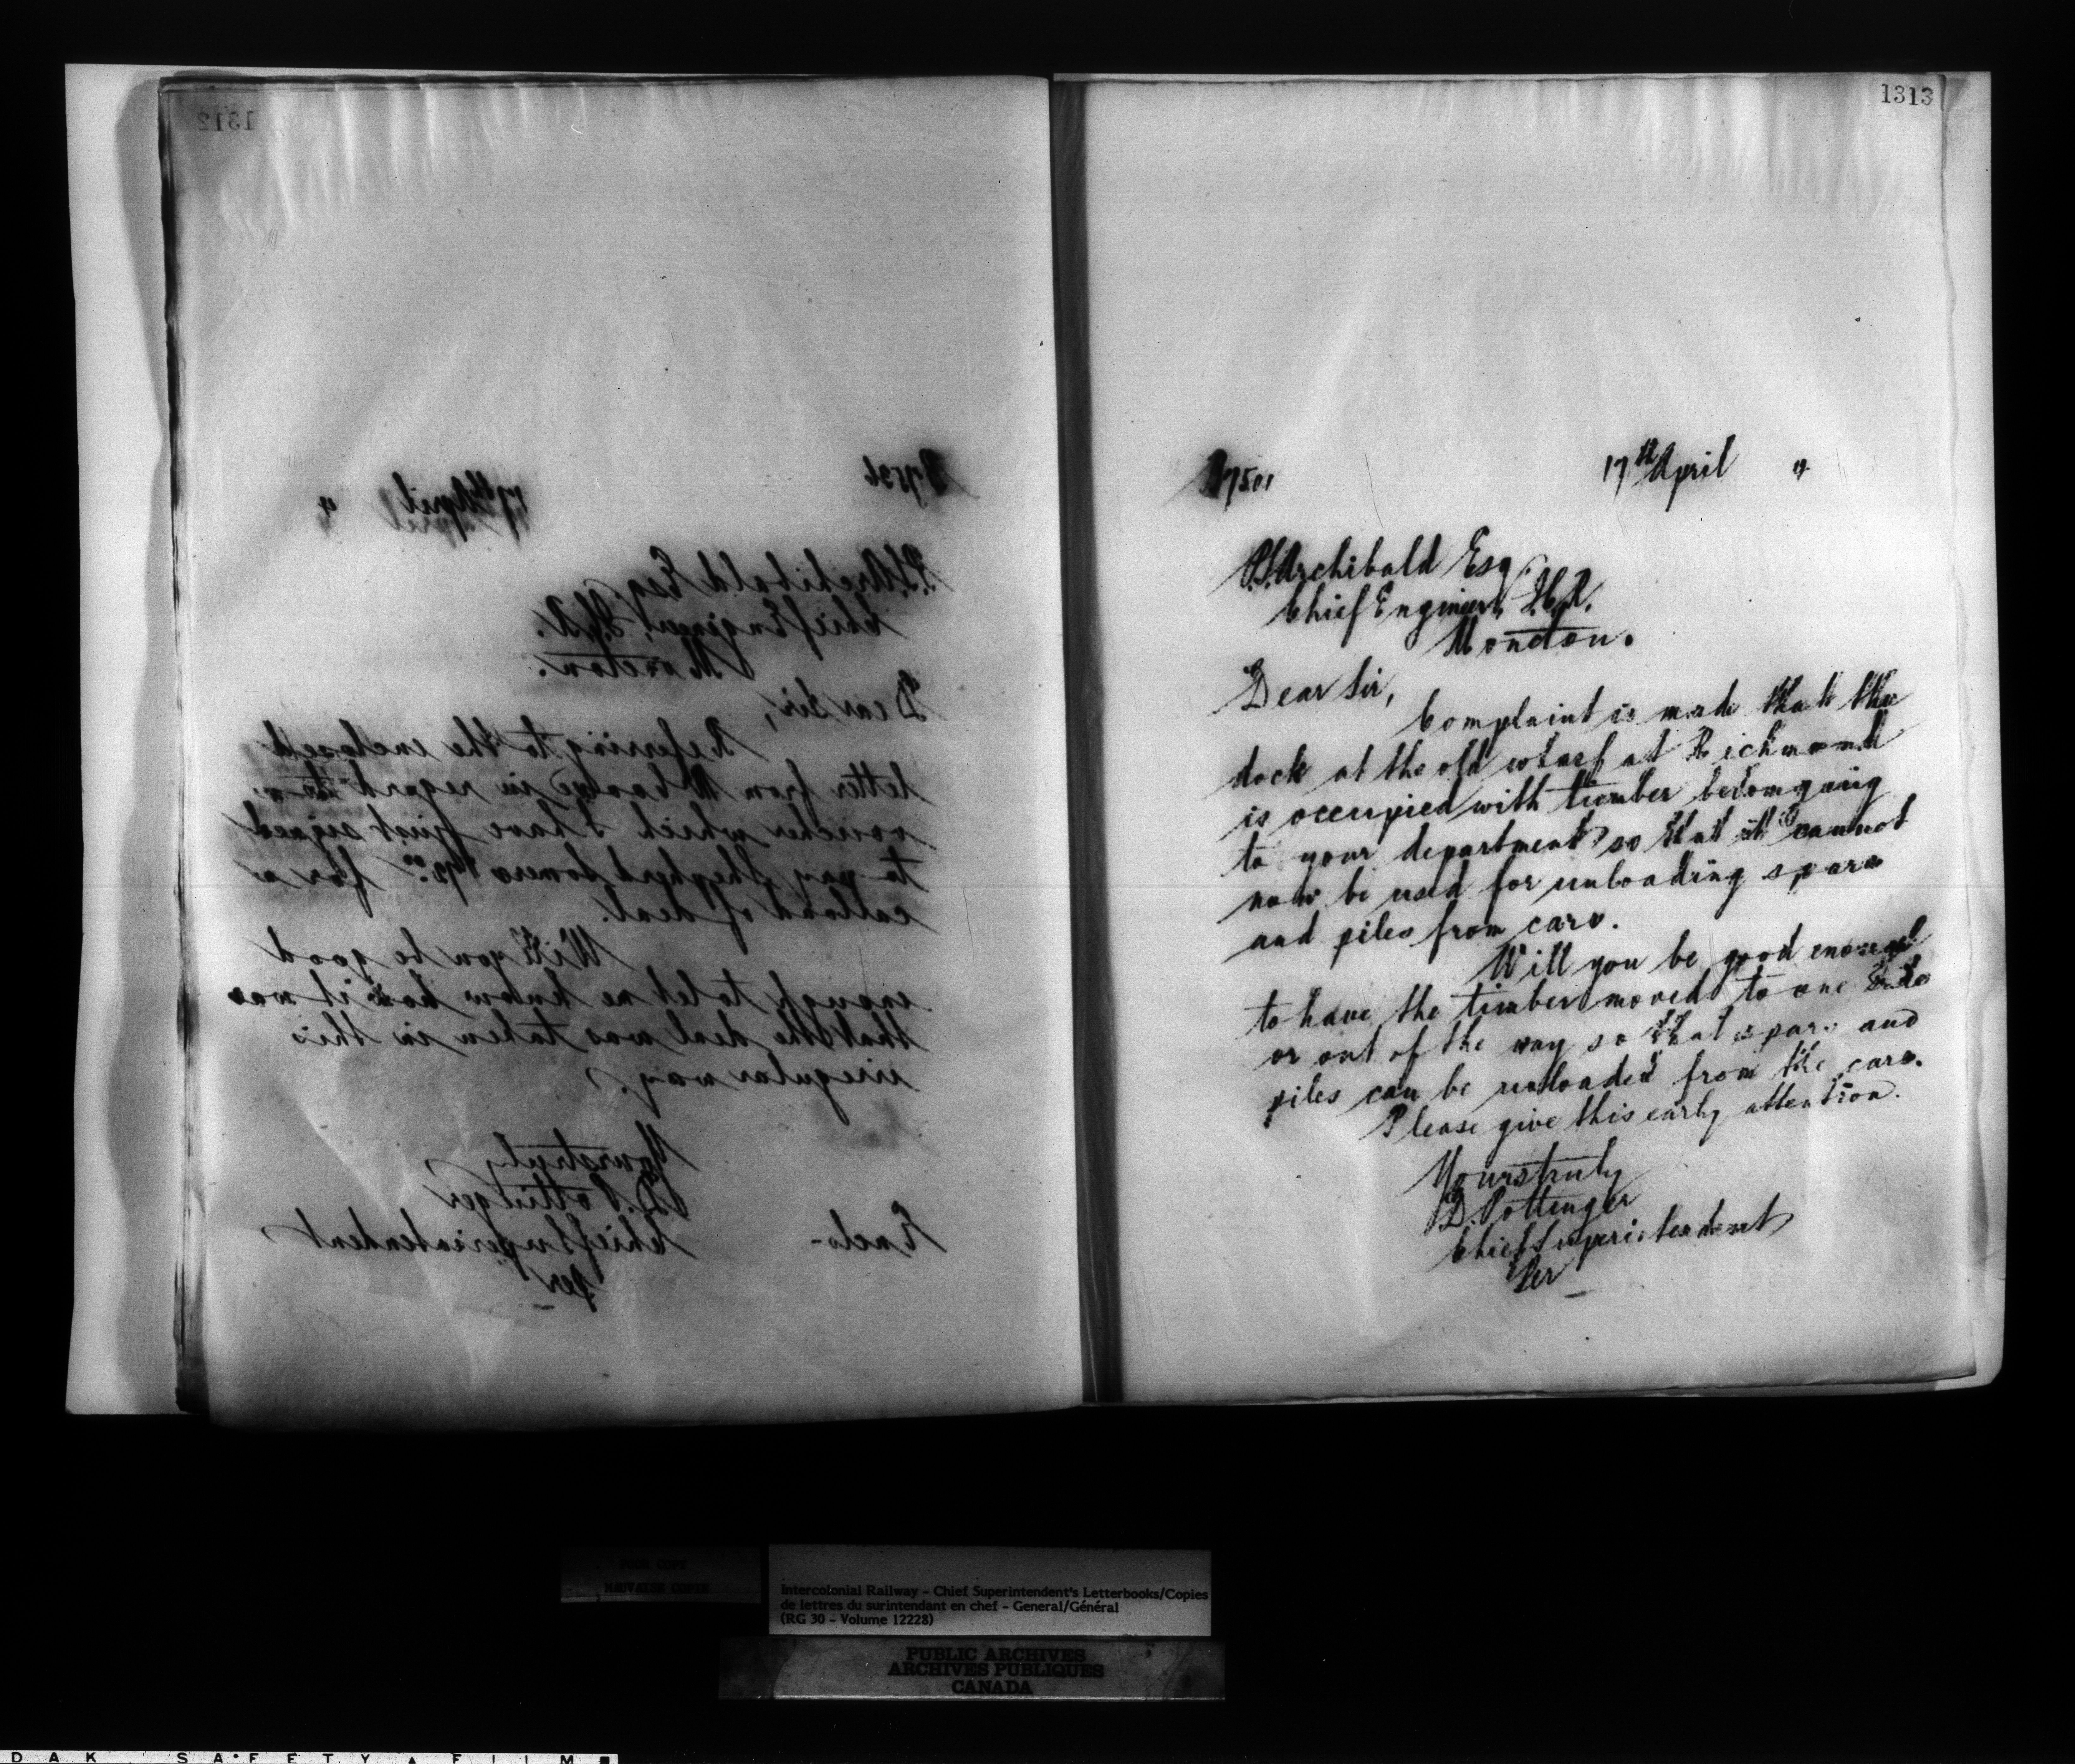 1312
17536 17th April "
P.S. Archibald Esq.
Chief Engineer, I.C.R.
Moncton.
Dear Sir,
Referring to the enclosed
letter from in regard to a
voucher which I have just signed
to pay Shepherd Somers for a
carload of deal.
Will you be good
enough to let me know how it was
that the deal was taken in this
irregular way.
Yours truly
D. Pottinger
Enclo- Chief Superintendent
Per
1313
17501 17th April "
P.S. Archibald Esq.
Chief Engineer, I.C.R.
Moncton.
Dear Sir,
Complaint is made that the
dock at the old wharf at Richmond
is occupied with timber belonging
to your department so that it cannot
now be used for unloading spars
and piles from cars.
Will you be good enough
to have the timber moved to one side
or out of the way so that spars and
piles can be unloaded from the cars.
Please give this early attention.
Yours truly
D. Pottinger
Chief Superintendent
Per
POOR COPY
MAUVAISE COPIE
Intercolonial Railway – Chief Superintendent's Letterbooks/Copies
de lettres du surintendant en chef – General/Général
(RG 30 – Volume 12228)
PUBLIC ARCHIVES
ARCHIVES PUBLIQUES
CANADA
DAK SAFETY FILM